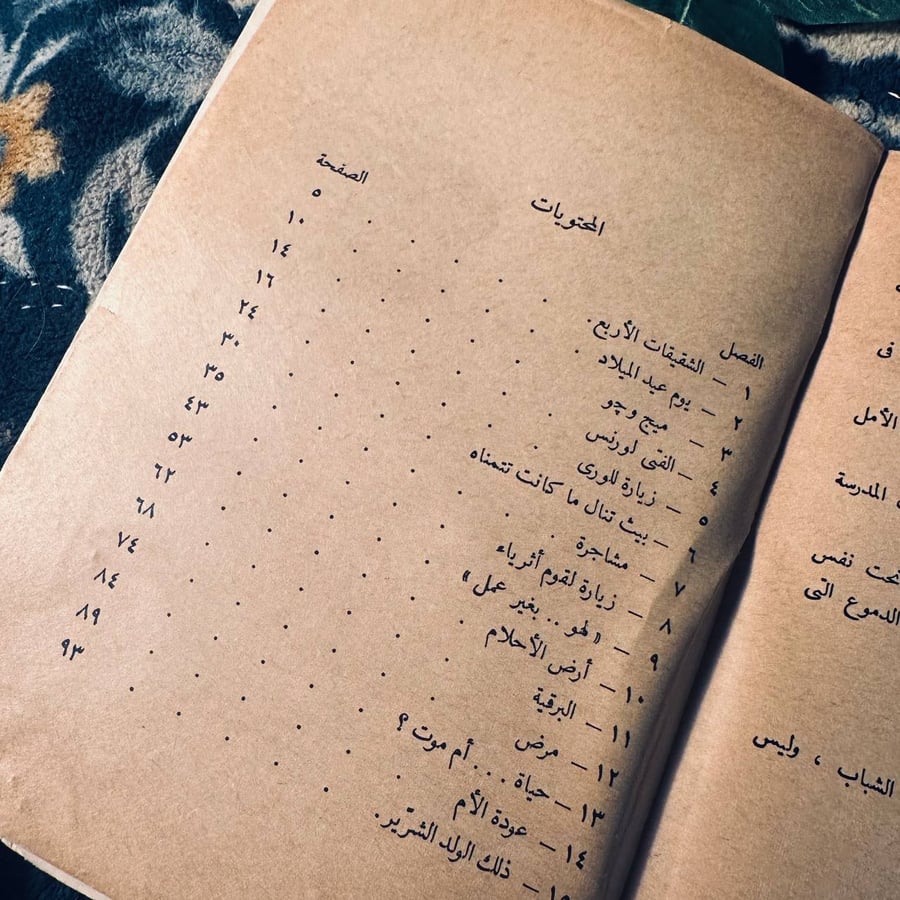 المحتويات
الفصل الصفحة
١ – الشقيقات الأربع . . . . . . ٥
٢ – يوم عيد الميلاد . . . . . ١٠
٣ – ميج وچو . . . . . ١٤
٤ – الفتى لورنس . . . . . ١٦
٥ – زيارة للورى . . . . . ٢٤
٦ – بيث تنال ما كانت تتمناه . . . . ٣٠
٧ – مشاجرة . . . . . ٣٥
٨ – زيارة لقوم أثرياء . . . . . ٤٣
٩ – « لهو .. بغير عمل » . . . . ٥٣
١٠ – أرض الأحلام . . . . . ٦٢
١١ – البرقية . . . . . ٦٨
١٢ – مرض . . . . . ٧٤
١٣ – حياة ... أم موت ؟ . . . . ٨٤
١٤ – عودة الأم . . . . . ٨٩
١٥ – ذلك الولد الشرّير . . . . . ٩٣
فى
الأمل
المدرسة
نفس
الدموع التى
الشباب ، وليس